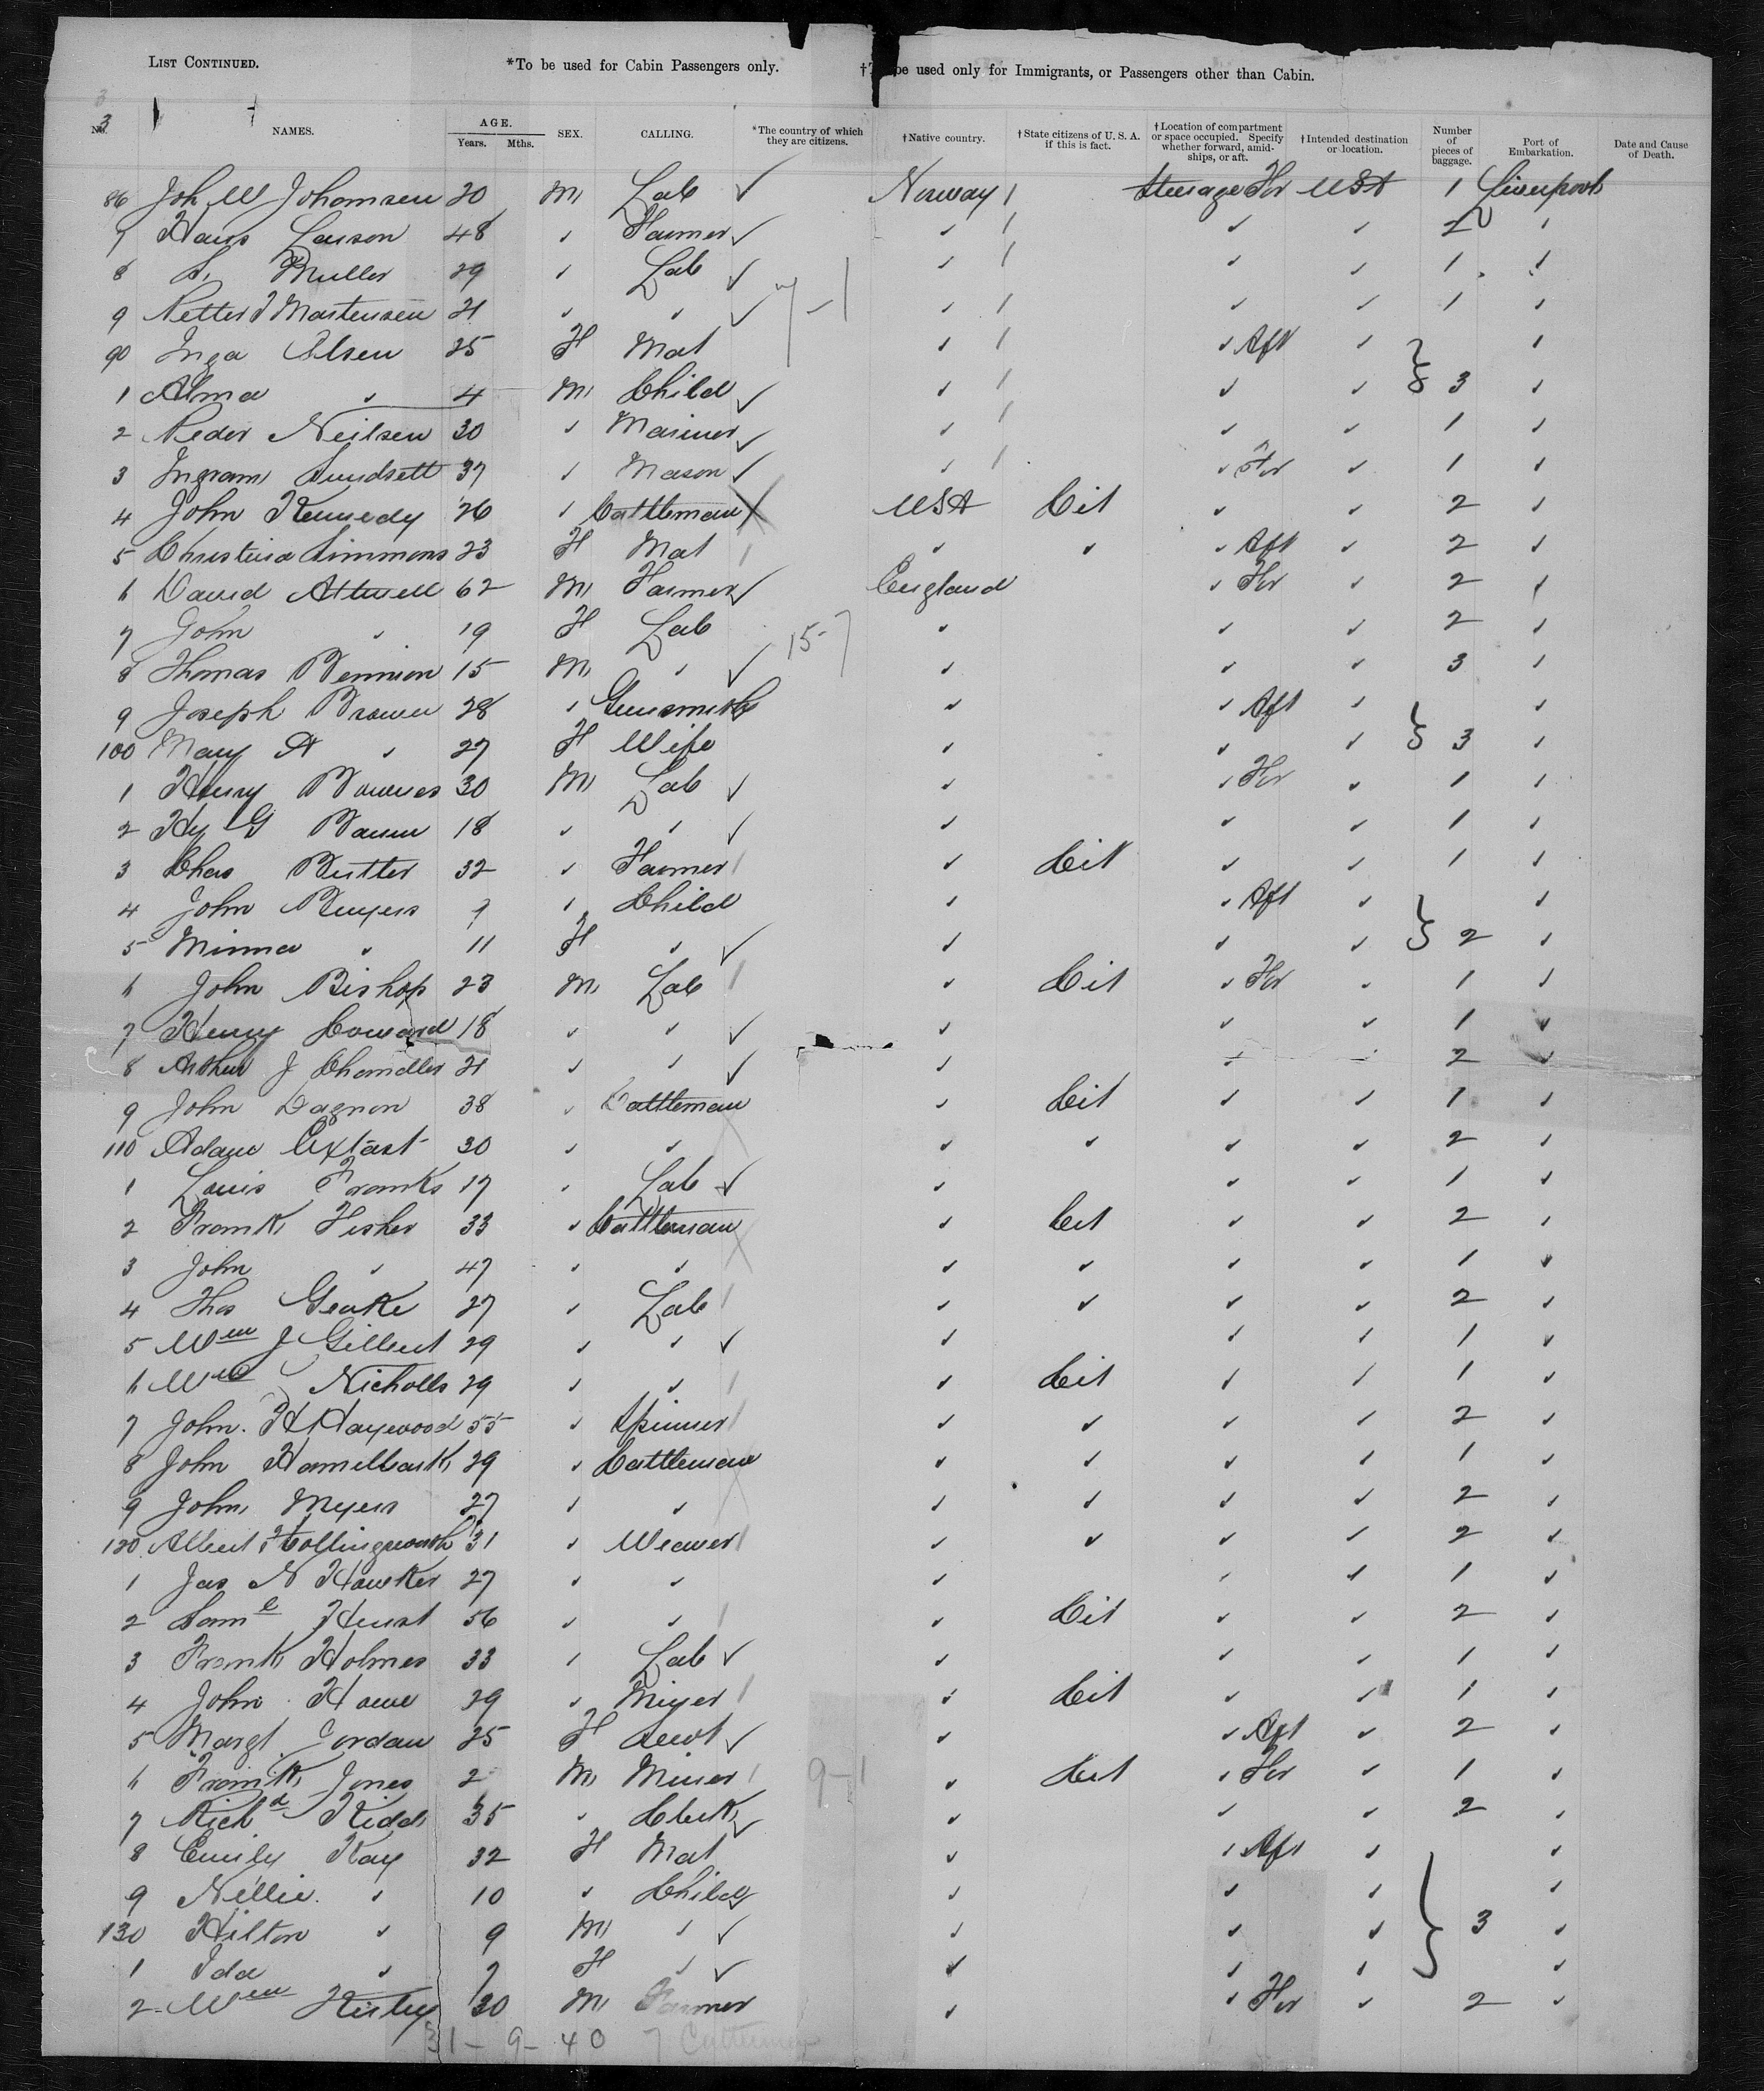 LIST CONTINUED. *To be used for Cabin Passengers only. be used only for Immigrants, or Passengers other than Cabin.
3
No. NAMES. AGE. Years. Mths. SEX. CALLING. *The country of which they are citizens. †Native country. †State citizens of U. S. A. if this is fact. †Location of compartment or space occupied. Specify whether forward, amidships, or aft. †Intended destination or location. Number of pieces of baggage. Port of Embarkation. Date and Cause of Death.
86 Joh W Johamsen 20 M Lab ✓ Norway 1 Steerage For USA 1 Liverpool
7 Hans Larson 48 " Farmer ✓ " 1 " " 2 "
8 S. Muller 29 " Lab ✓ " 1 " " 1 "
9 Petter J Martensen 21 " " ✓ 7-1 " 1 " " 1 "
90 Inga Olsen 25 F Mat " 1 " Aft " "
1 Alma " 4 M Child ✓ " 1 " " 3 "
2 Peder Neilsen 30 " Mariner ✓ " 1 " " 1 "
3 Ingram Sundsett 37 " Mason ✓ " 1 " For " 1 "
4 John Kennedy 26 " Cattleman X USA Cit " " 2 "
5 Christina Simmons 23 F Mat 1 " " " Aft " 2 "
6 David Attwell 62 M Farmer ✓ England " For " 2 "
7 John " 19 F Lab " " " 2 "
8 Thomas Bennion 15 M " ✓ 15-7 " " " 3 "
9 Joseph Brown 28 " Gunsmith " " Aft " "
100 Mary A " 27 F Wife " " " 3 "
1 Henry Bowes 30 M Lab ✓ " " For " 1 "
2 Hy G 18 " " ✓ " " " 1 "
3 Chas Butler 32 " Farmer 1 " Cit " " 1 "
4 John 9 " Child " " Aft " "
5 Minna " 11 F " ✓ " " " 2 "
6 John Bishop 23 M Lab 1 " Cit " For " 1 "
7 Henry Coward 18 " " ✓ " " " 1 "
8 Arthur J Chandler 21 " " ✓ " " " 2 "
9 John Dagnon 38 " Cattleman " Cit " " 1 "
110 Adam 30 " " X " " " " 2 "
1 Louis Franks 17 " Lab ✓ " " " 1 "
2 Frank Fisher 33 " Cattleman " Cit " " 2 "
3 John " 47 " " X " " " " 1 "
4 Thos Geake 27 " Lab 1 " " " " 2 "
5 Wm J Gilbert 29 " " ✓ " " " 1 "
6 Wm Nicholls 29 " " 1 " Cit " " 1 "
7 John. H Haywood 55 " Spinner 1 " " " " 2 "
8 John 29 " Cattleman " " " " 1 "
9 John Myers 27 " " X " " " " 2 "
120 Albert Hollingworth 31 " Weaver 1 " " " " 2 "
1 Jas N Hawker 27 " " " " " 1 "
2 Saml Hurst 56 " " 1 " Cit " " 2 "
3 Frank Holmes 33 " Lab ✓ " " " 1 "
4 John Howe 29 " 1 " Cit " " 1 "
5 Margt Jordan 25 F Servt ✓ " " Aft " 2 "
6 Frank Jones 2 M Miner 1 9-1 " Cit " For " 1 "
7 Richd Kidd 35 " Clerk ✓ " " " 2 "
8 Emily Kay 32 F Mat " " Aft " "
9 Nellie " 10 " Child ✓ " " " "
130 Hilton " 9 M " ✓ " " " 3 "
1 Ida " 7 F " ✓ " " " "
2 Wm 30 M Farmer " " For " 2 "
31-9-40 7 Cattlemen